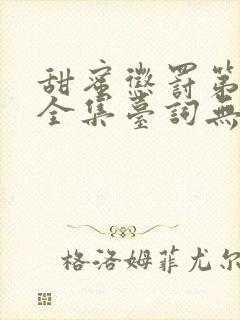 甜蜜懲罰第
全集臺詞無
格洛姆菲尤尔